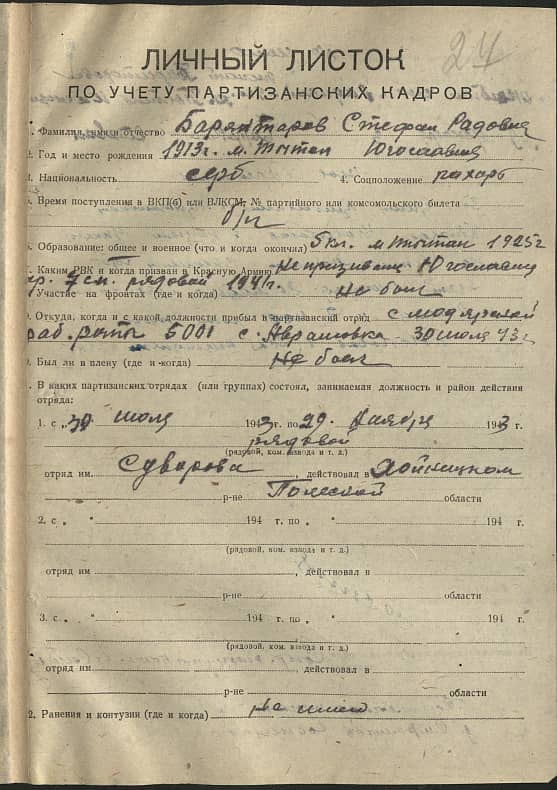 24
ЛИЧНЫЙ ЛИСТОК
ПО УЧЕТУ ПАРТИЗАНСКИХ КАДРОВ
Фамилия, имя и отчество Стефан
2. Год и место рождения 1913г. м. Югославия
3. Национальность серб 4. Соцположение пахарь
Время поступления в ВКП(б) или ВЛКСМ, № партийного или комсомольского билета
б/п
Образование: общее и военное (что и когда окончил) 5 кл. м. 1925г
Каким РВК и когда призван в Красную Армию Югославия
рядовой 1941г.
Участие на фронтах (где и когда) не был
Откуда, когда и с какой должности прибыл в партизанский отряд с мадярской
раб. роты с. 30 июля 43г
Был ли в плену (где и когда) не был
В каких партизанских отрядах (или группах) состоял, занимаемая должность и район действия
отряда:
1. с „30 июля 1943г. по „29. ноября 1943 г.
рядовой
(рядовой, ком. взвода и т. д.)
отряд им. Суворова, действовал в
р-не Полеской области
2. с „ " 194 г. по „ " 194 г.
(рядовой, ком. взвода и т. д.)
отряд им , действовал в
р-не области
3. с „ " 194 г. по „ " 194 г.
(рядовой, ком. взвода и т. д.)
отряд им. действовал в
р-не области
2. Ранения и контузии (где и когда)